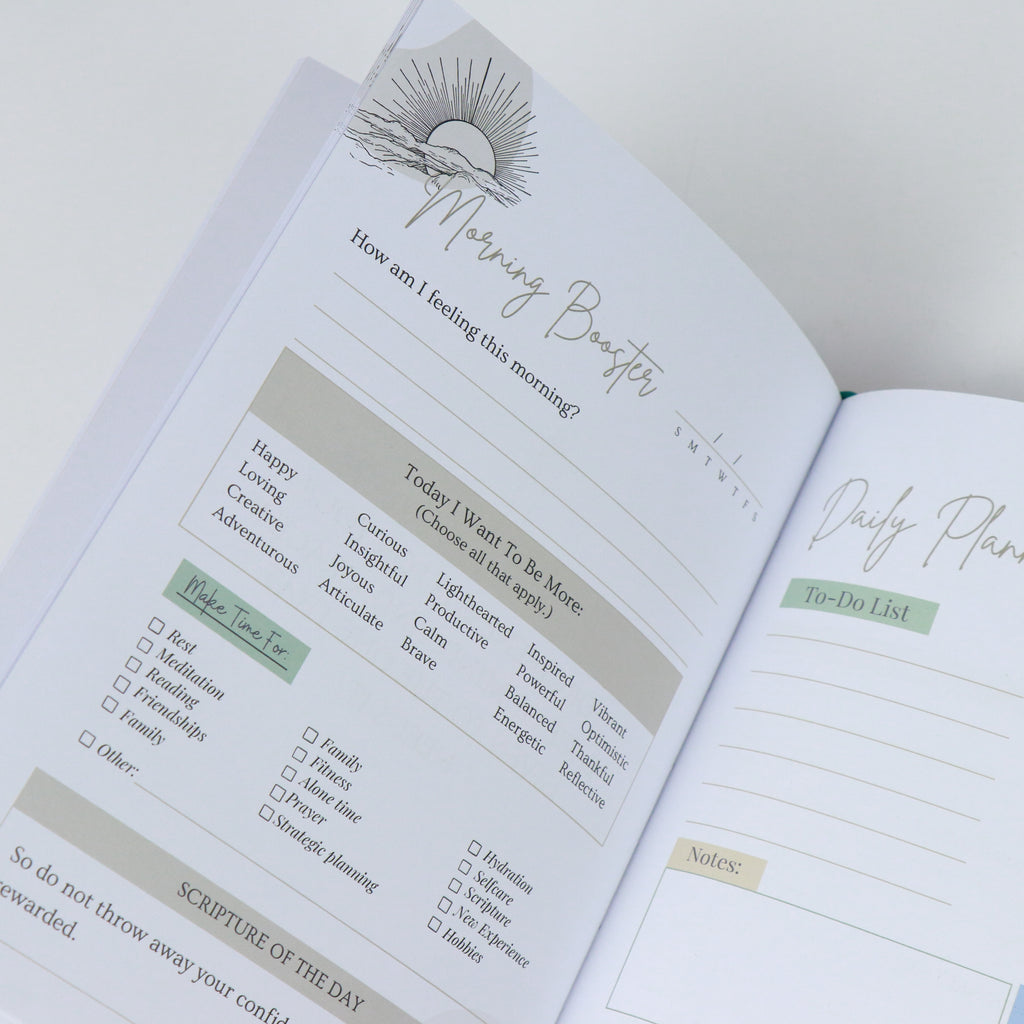 Morning Booster
/ /
S M T W T F S
How am I feeling this morning?
Today I Want To Be More:
(Choose all that apply.)
Happy
Loving
Creative
Adventurous
Curious
Insightful
Joyous
Articulate
Lighthearted
Productive
Calm
Brave
Inspired
Powerful
Balanced
Energetic
Vibrant
Optimistic
Thankful
Reflective
Make Time For:
Rest
Meditation
Reading
Friendships
Family
Other:
Family
Fitness
Alone time
Prayer
Strategic planning
Hydration
Selfcare
Scripture
New Experience
Hobbies
SCRIPTURE OF THE DAY
So do not throw away your confid
rewarded.
Daily Plan
To-Do List
Notes: